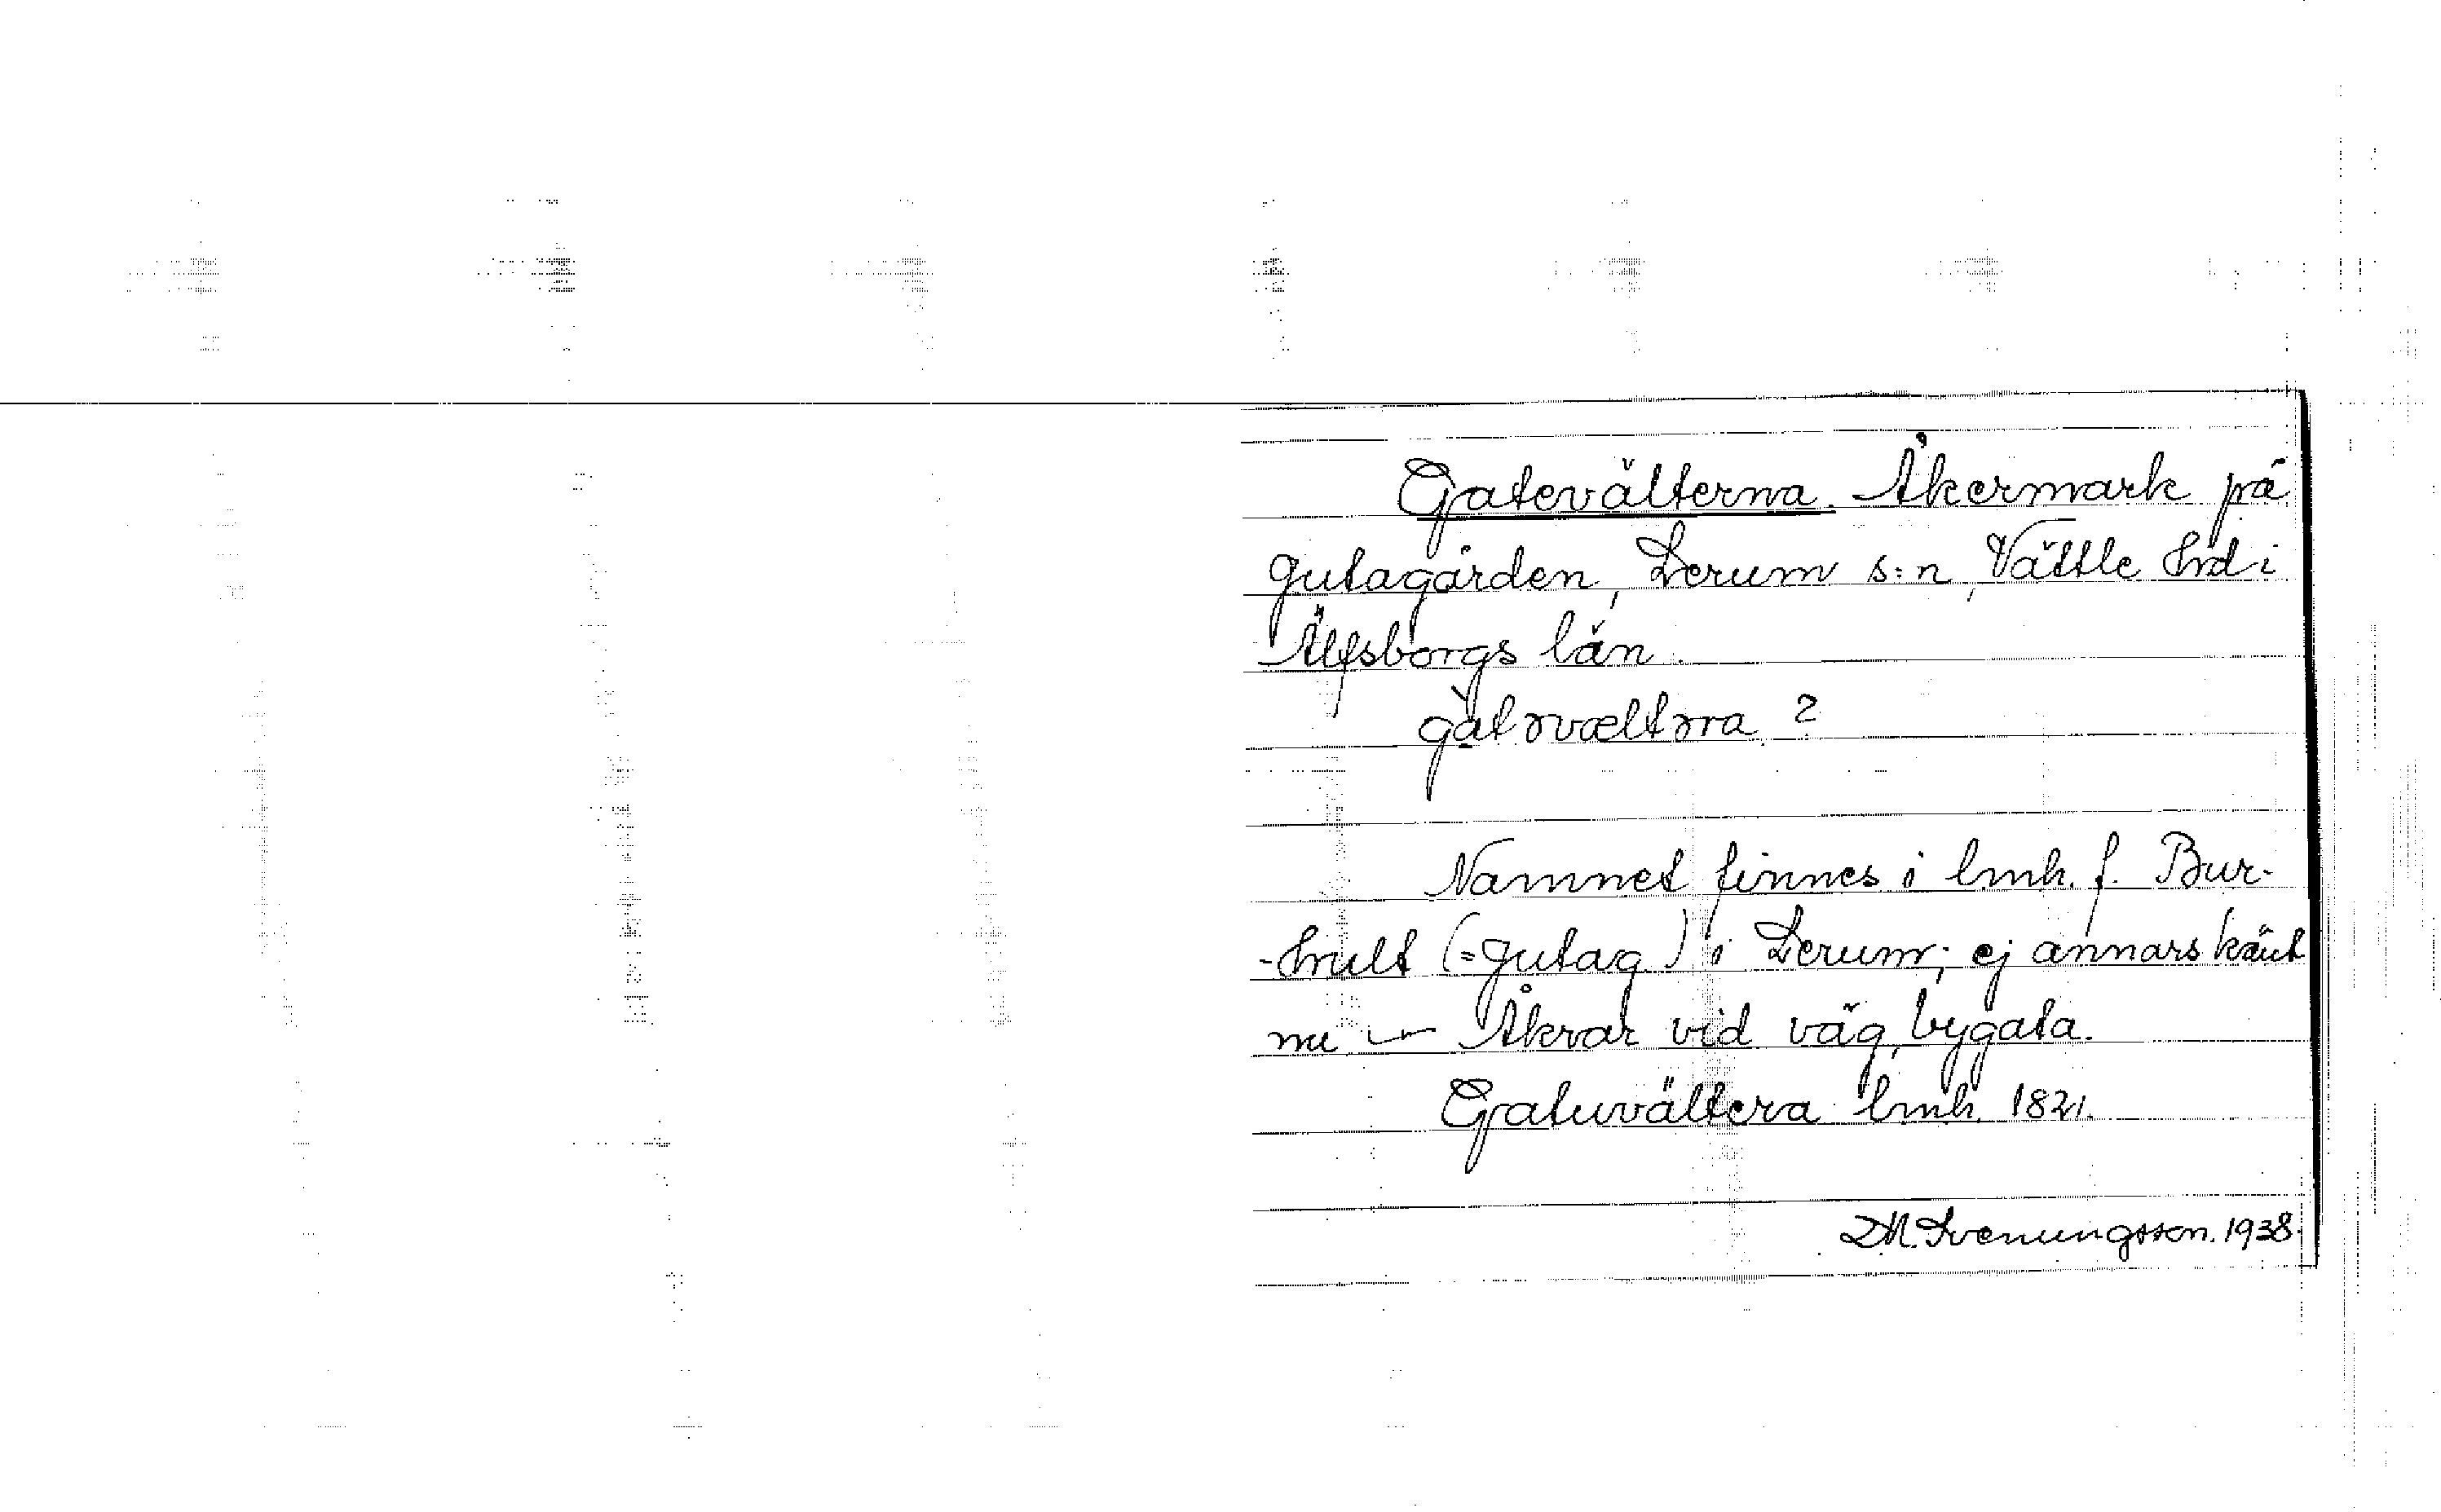 Gatevälterna. Åkermark på
Gutagården, Lerum s:n, Vättle hd i
Älfsborgs län.
gàtəvæltəra ?
Namnet finnes i lmh. f. Bur-
-hult (=Gutag.) i Lerum; ej annars känt
nu — Åkrar vid väg, bygata.
Gatuvältera lmh. 1821.
D.M. Svenungsson. 1938.